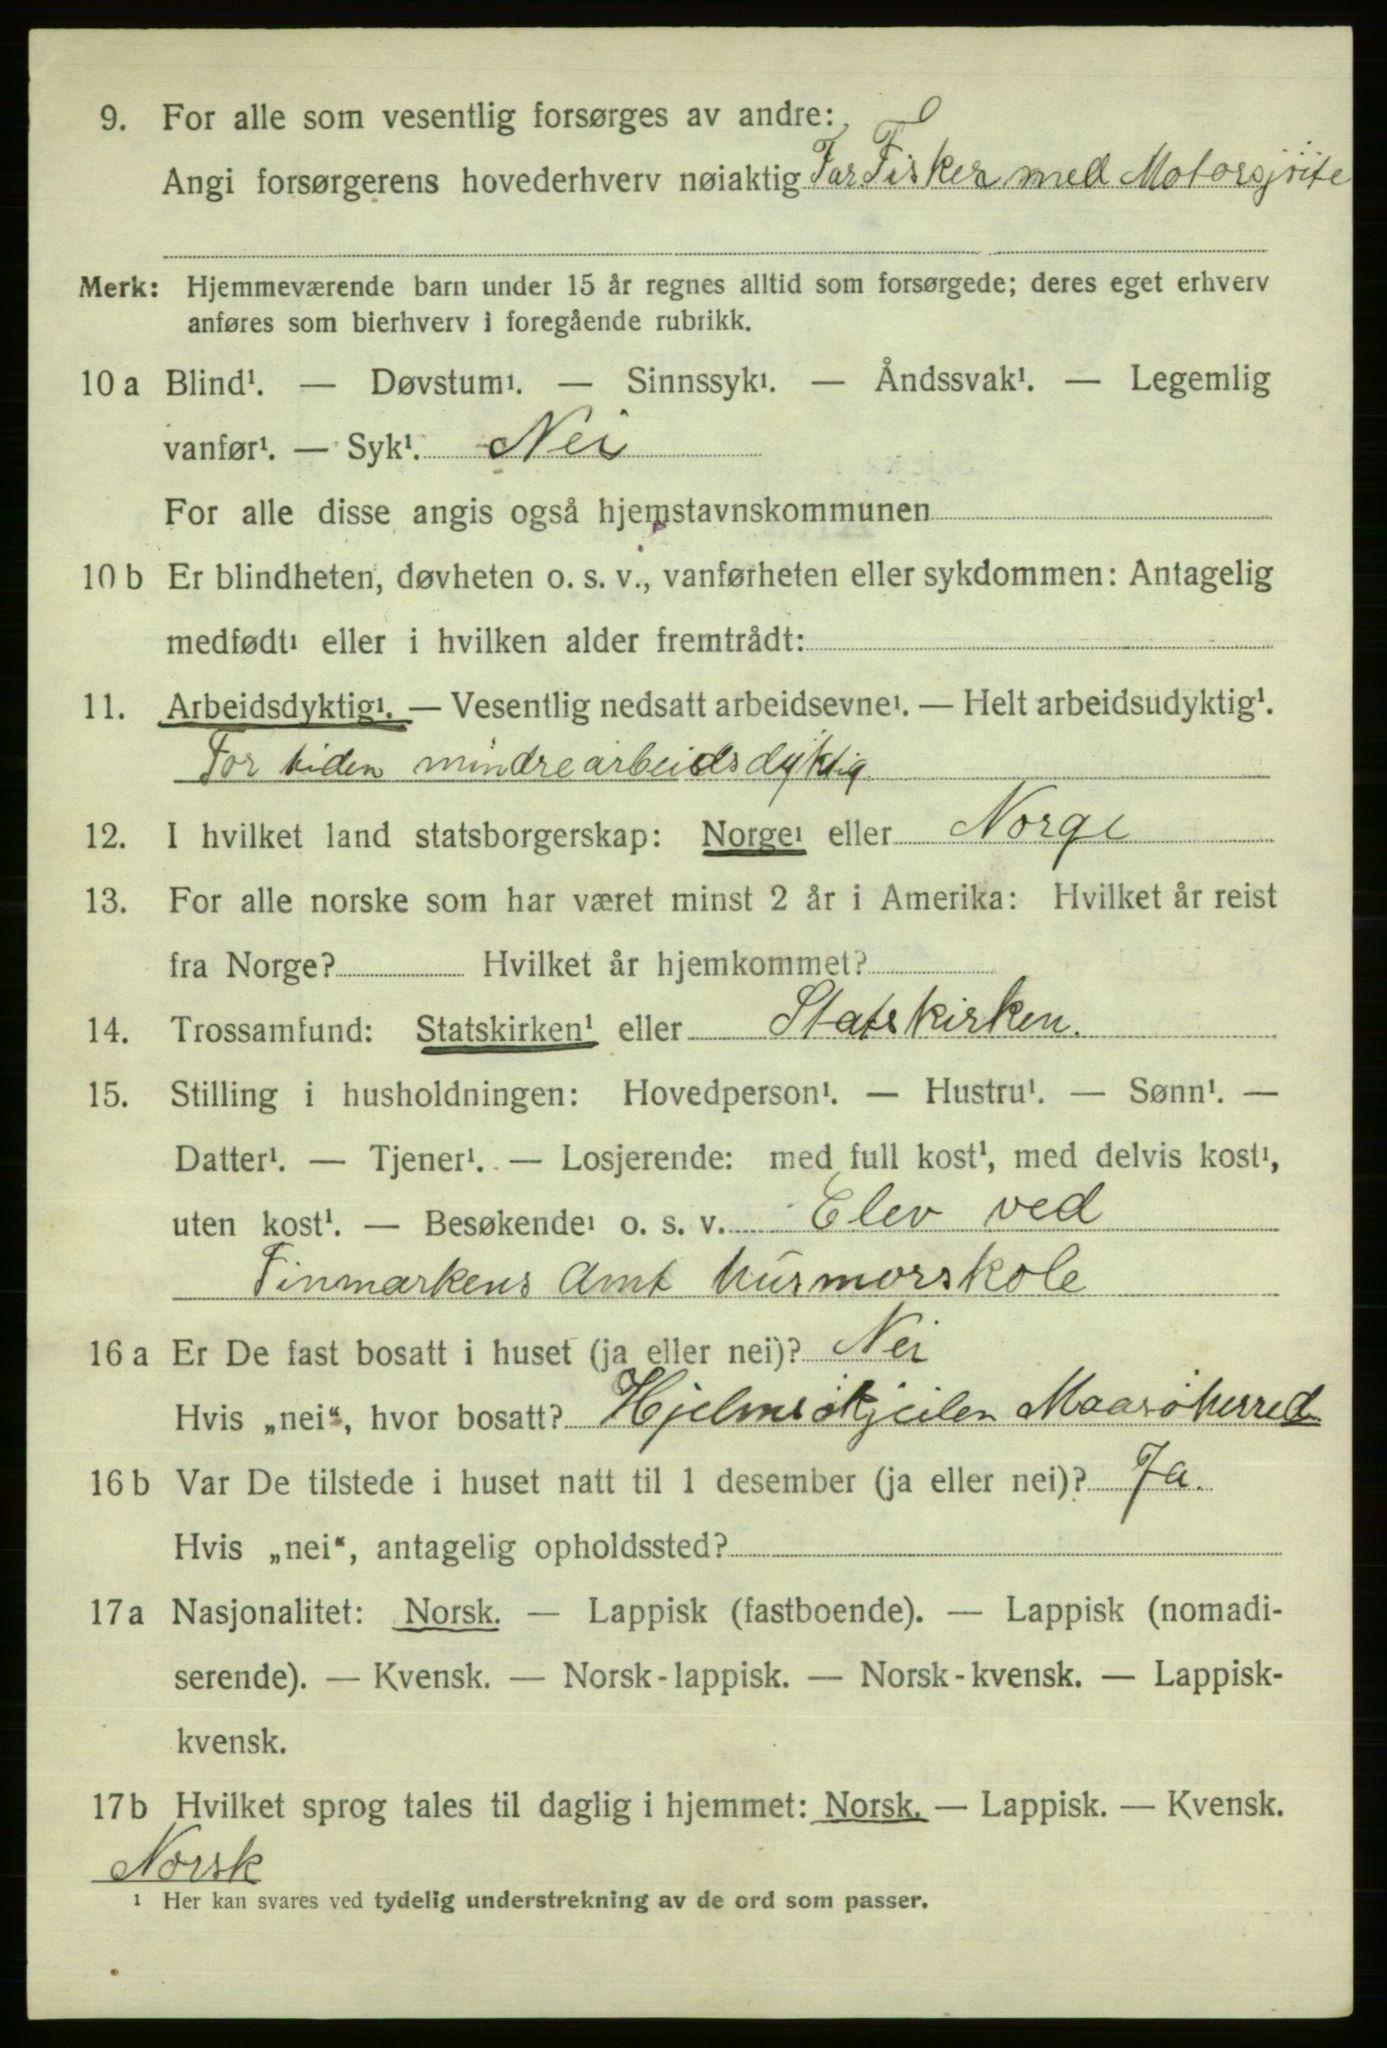 9. For alle som vesentlig forsørges av andre:
Angi forsørgerens hovederhverv nøiaktig Far Fisker med
Merk: Hjemmeværende barn under 15 år regnes alltid som forsørgede; deres eget erhverv
anføres som bierhverv i foregående rubrikk.
10 a Blind¹. — Døvstum¹. — Sinnssyk¹. — Åndssvak¹. — Legemlig
vanfør¹. — Syk¹. Nei
For alle disse angis også hjemstavnskommunen
10 b Er blindheten, døvheten o. s. v., vanførheten eller sykdommen: Antagelig
medfødt¹ eller i hvilken alder fremtrådt:
11. Arbeidsdyktig¹. — Vesentlig nedsatt arbeidsevne¹. — Helt arbeidsudyktig¹.
For tiden mindre arbeidsdyktig
12. I hvilket land statsborgerskap: Norge¹ eller Norge
13. For alle norske som har været minst 2 år i Amerika: Hvilket år reist
fra Norge? Hvilket år hjemkommet?
14. Trossamfund: Statskirken¹ eller Statskirken.
15. Stilling i husholdningen: Hovedperson¹. — Hustru¹. — Sønn¹. —
Datter¹. — Tjener¹. — Losjerende: med full kost¹, med delvis kost¹,
uten kost¹. — Besøkende¹ o. s. v. Elev ved
Finmarkens Amt husmorskole
16 a Er De fast bosatt i huset (ja eller nei)? Nei
Hvis „nei“, hvor bosatt? Maasøherred
16 b Var De tilstede i huset natt til 1 desember (ja eller nei)? Ja.
Hvis „nei“, antagelig opholdssted?
17 a Nasjonalitet: Norsk. — Lappisk (fastboende). — Lappisk (nomadi-
serende). — Kvensk. — Norsk-lappisk. — Norsk-kvensk. — Lappisk-
kvensk.
17 b Hvilket sprog tales til daglig i hjemmet: Norsk. — Lappisk. — Kvensk.
Norsk
¹ Her kan svares ved tydelig understrekning av de ord som passer.